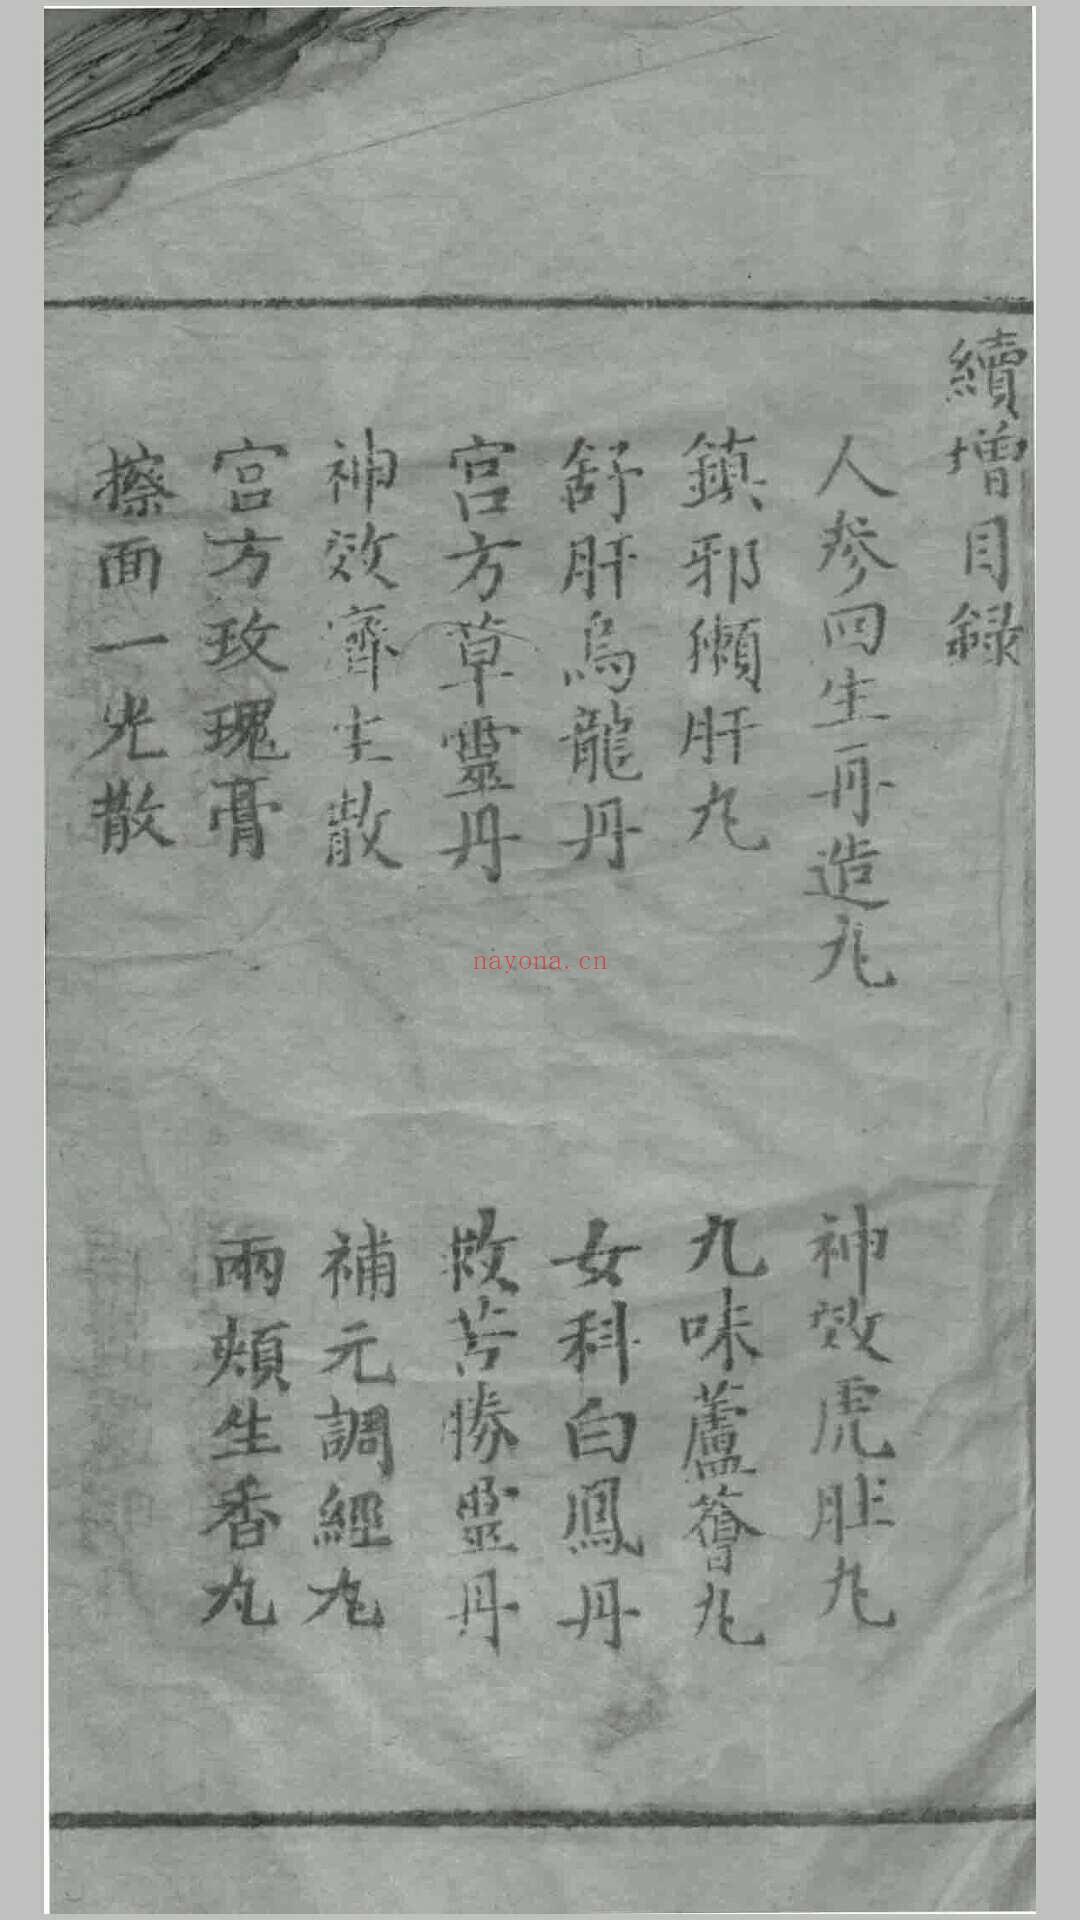 續增目錄
人參回生再造丸
神效虎肚丸
鎮邪獺肝丸
九味蘆薈丸
舒肝烏龍丹
女科白鳳丹
宮方草靈丹
救苦勝靈丹
神效濟生散
補元調經丸
宮方玫瑰膏
兩頰生香丸
擦面一光散
nayona.cn